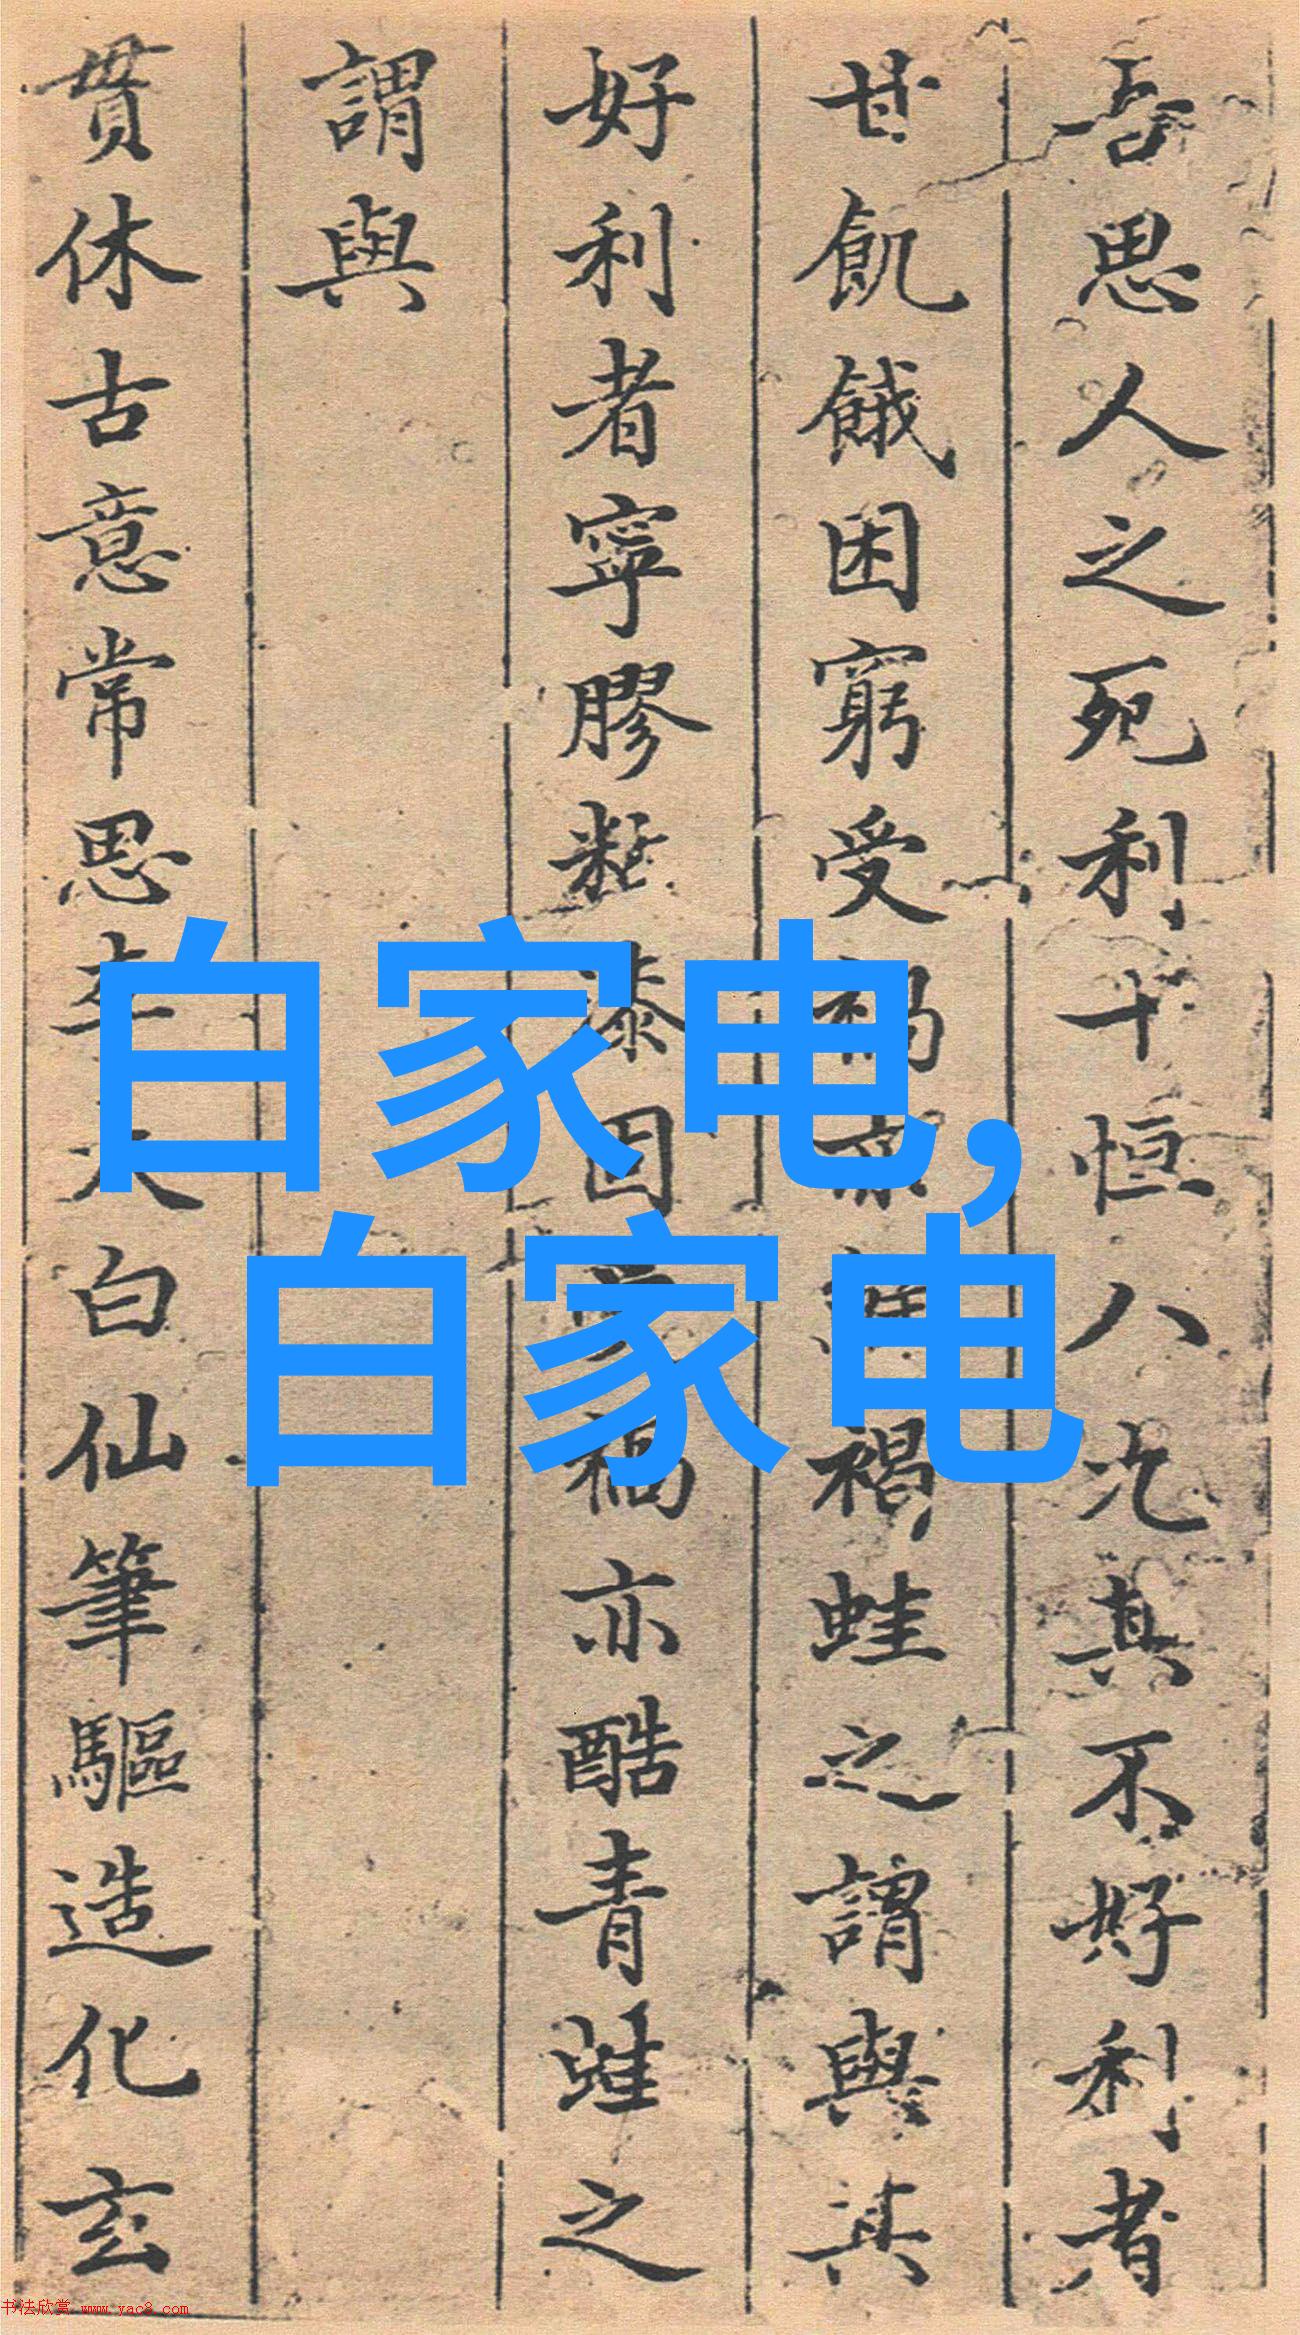 吾思人之死利十恒八九其不好利者
甘飢餓困窮受禍亦
褐蛙之謂與其
好利者寧膠黏漆固
禍亦酷青蛙之
謂與
貫休古意常思李太白仙筆驅造化玄
白家电,
白家电
书法欣赏 www.yac8.com